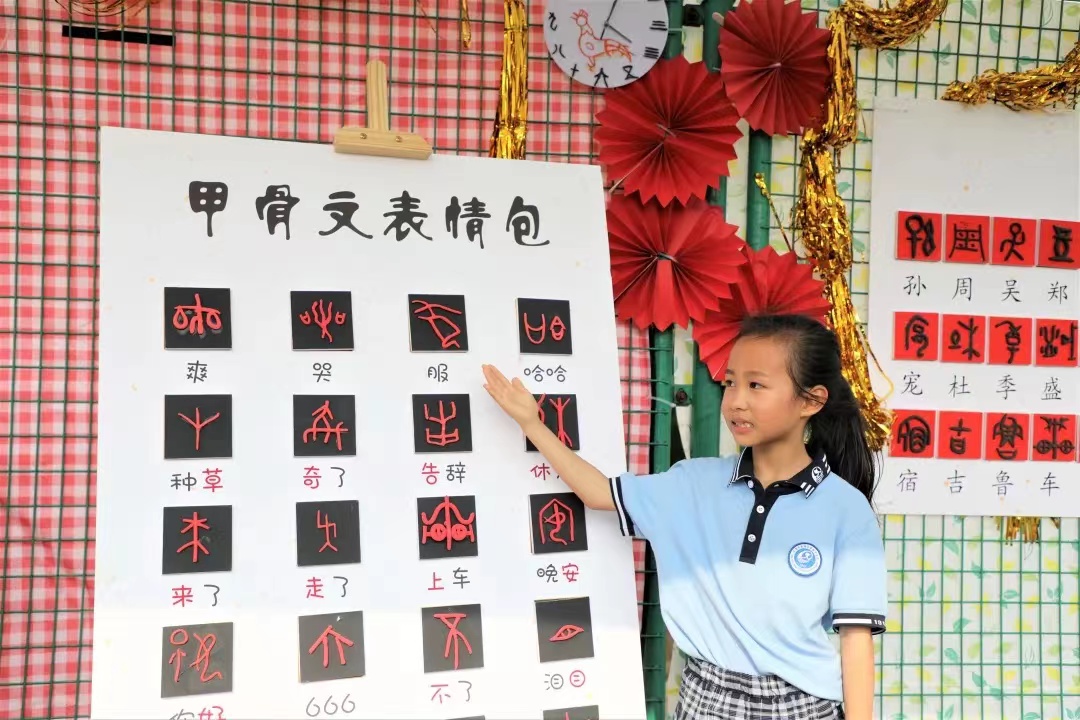 甲骨文表情包
爽 哭 服 哈哈
种草 奇了 告辞 休
来了 走了 上车 晚安
你好 666 不了 泪目
孙 周 吴 郑
宠 杜 季 盛
宿 吉 鲁 车